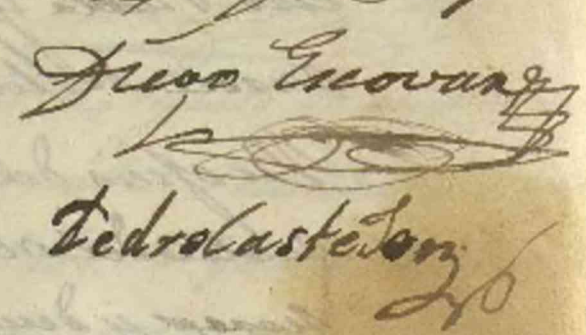 Diego Escovar
Pedro Castellon